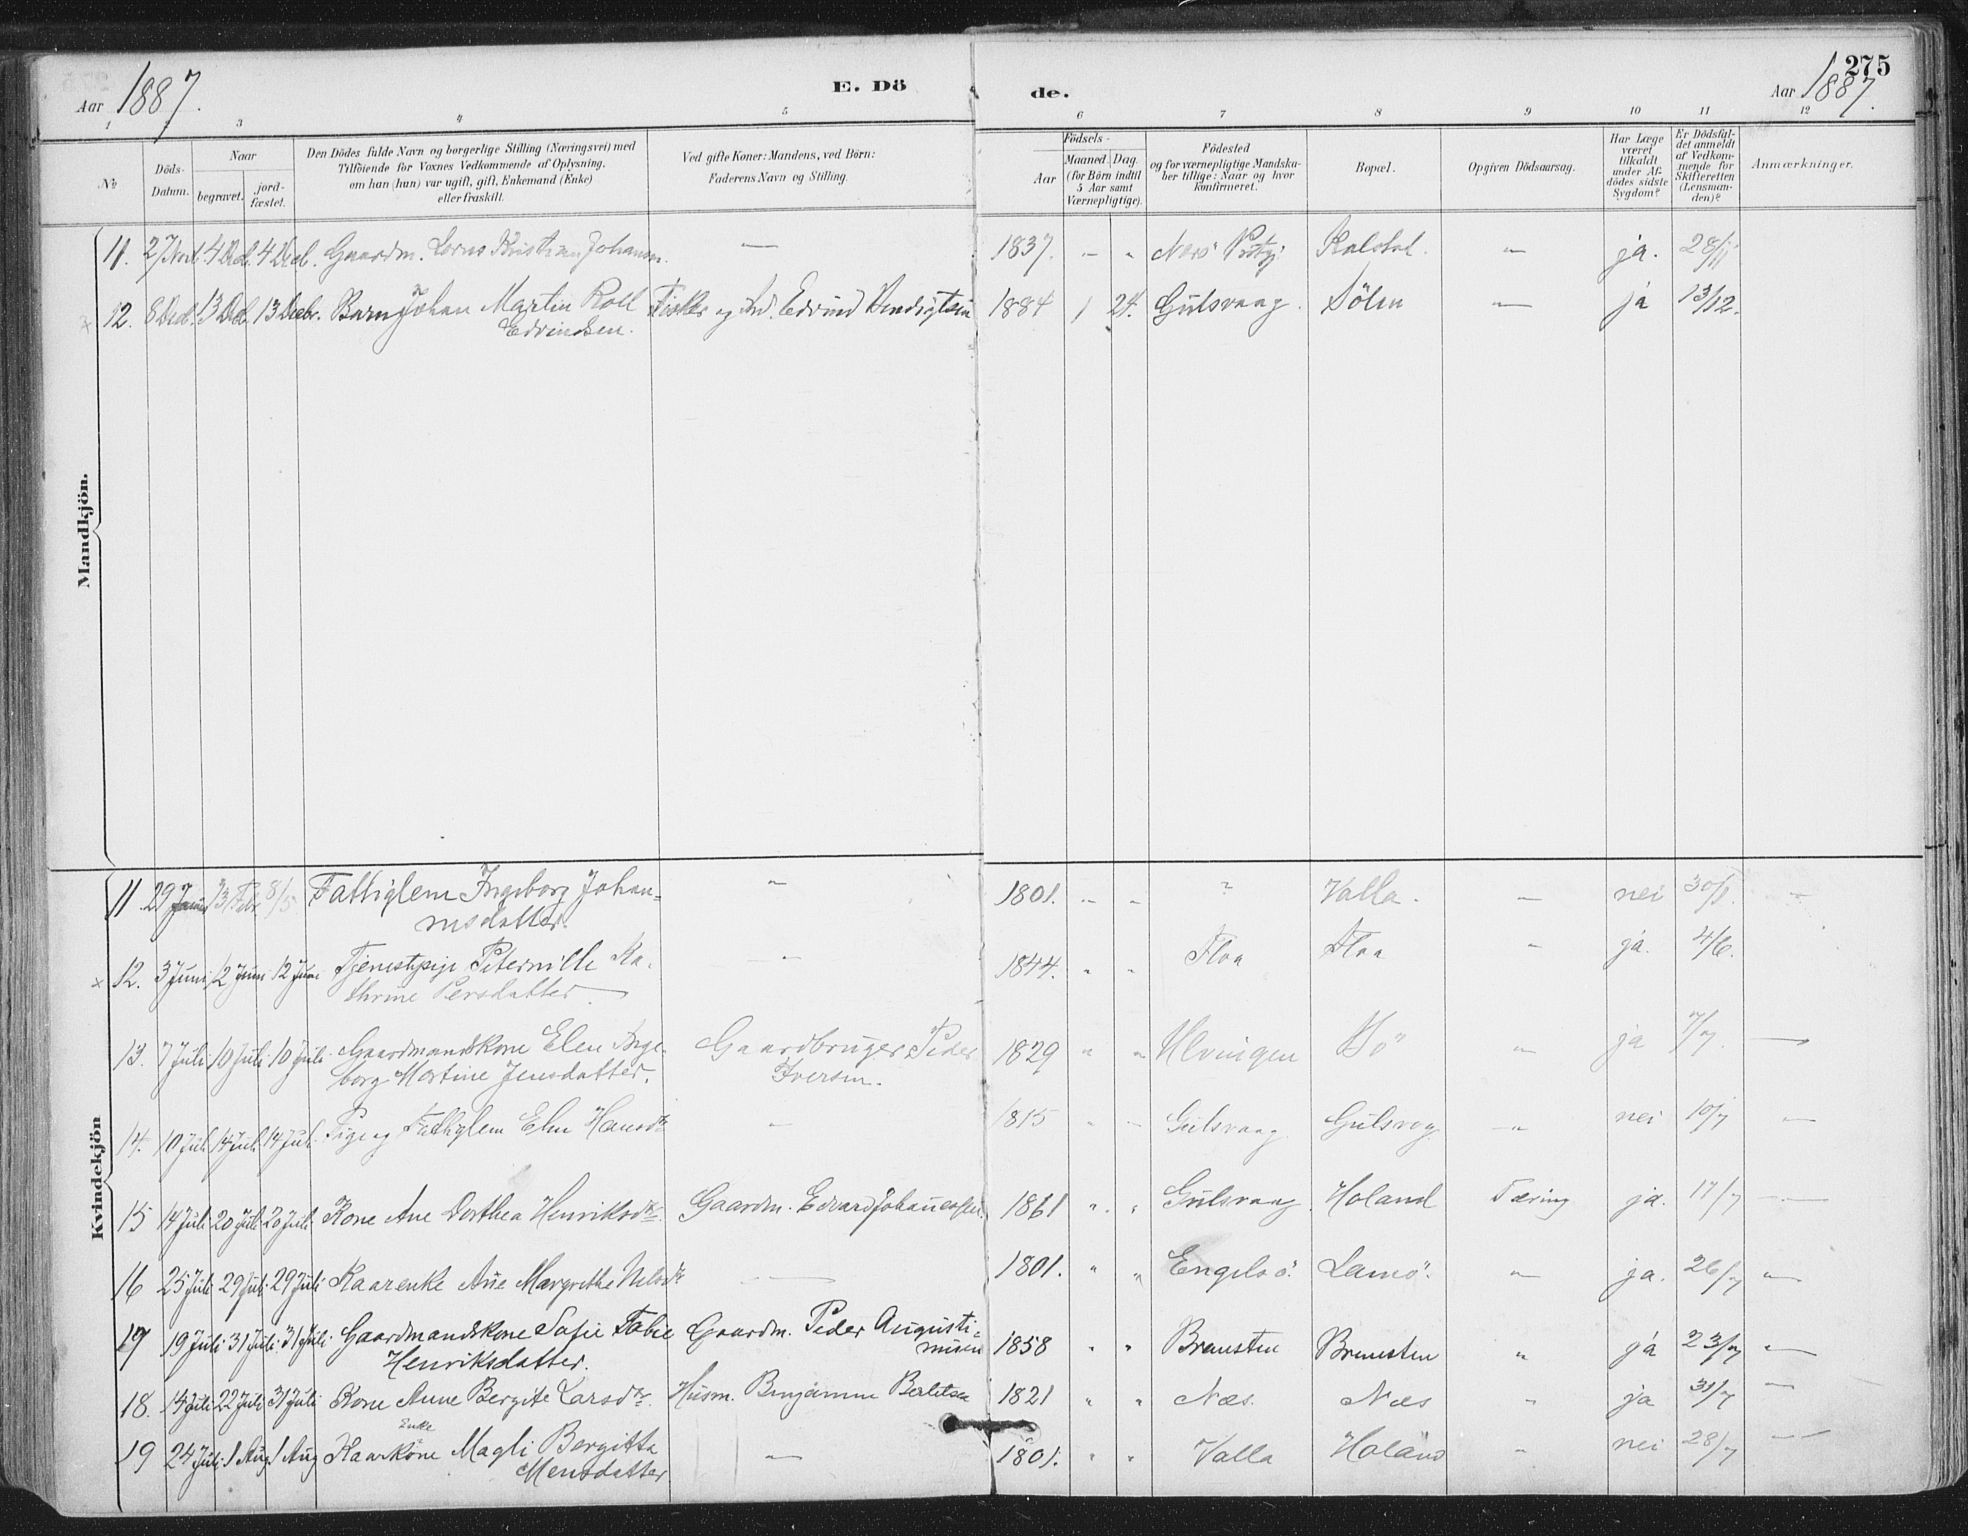 Aar 1887. E. Dö de. Aar 1887. 275
1 2 3 4 5 6 7 8 9 10 11 12
№ Döds-Datum. Naar begravet. jord-fæstet.
Den Dödes fulde Navn og borgerlige Stilling (Næringsvei) med
Tilföiende for Voxnes Vedkommende af Oplysning,
om han (hun) var ugift, gift, Enkemand (Enke)
eller fraskilt.
Ved gifte Koner: Mandens, ved Börn:
Faderens Navn og Stilling.
Födsels-
Aar Maaned. Dag.
(for Börn indtil
5 Aar samt
Værnepligtige).
Födested
og for værnepligtige Mandska-
ber tillige: Naar og hvor
konfirmeret.
Bopæl.
Opgiven Dödsaarsag.
Har Læge
været
tilkaldt
under Af-
dödes sidste
Sygdom?
Er Dödsfal-
det anmeldt
af Vedkom-
mende for
Skifteretten
(Lensman-
den)?
Anmærkninger.
Mandkjön.
11. 27 Novb. 4 Decb. 4 Decb. Gaardm. Kristian Johansen. — 1837. - " Kalstad. — ja. 28/11
12. 8 Decb. 13 Decb. 13 Decbr. Barn Johan Martin Roll Fisker og Ind. Edvind Bendigtsen 1884 1 24. Gulsvaag. Sölen — ja 13/12.
Edvindsen.
Kvindekjön
11. 29 Januar 13 Febr. 8/5 Fattiglem Ingeborg Johan- — 1801. - - ? Valla. — nei 30/1. —
nesdatter.
12. 3 Juni 12 Juni 12 Juni Tjenestpige Peternille Ka- — 1844. " " Floa Floa " ja. 4/6.
thrine Persdatter.
13. 7 Juli 10 Juli 10 Juli Gaardmandskone Elen Inge- Gaardbruger Peder 1829 " " Ulvingen Bö " ja 7/7. —
borg Martine Jensdatter. Iversen.
14. 10 Juli 14 Juli 14 Juli. Pige og Fattiglem Elen Hansdtr — 1815 " - Gulsvaag Gulsvag — nei 10/7 —
15 14 Juli 20 Juli 20 Juli. Kone Ane Dorthea Henriksdtr. Gaardm. Edvard Johannessen. 1861 " " Gulsvaag. Holand Tæring ja. 17/7 —
16 25 Juli 29 Juli 29 Juli Kaarenke Ane Margrethe Nilsdtr — 1801. " " Engelsö. Lamö. " ja. 26/7 "
17 19 Juli 31 Juli. 31 Juli. Gaardmandskone Sofie Tobie Gaardm. Peder Augusti- 1858 " " Brensten Brensten " ja 23/7 —
Henriksdatter. nusen
18. 15 Juli 22 Juli 31 Juli Kone Anne Bergite Larsdtr. Husm. Benjamin Berlitsen 1821 " " Næs. Næs " ja 31/7 —
Enke
19 24 Juli 1 Aug 1 Aug Kaarkone Magli Bergitta — 1801. " " Valla Holand " nei 28/7 —
Mensdatter